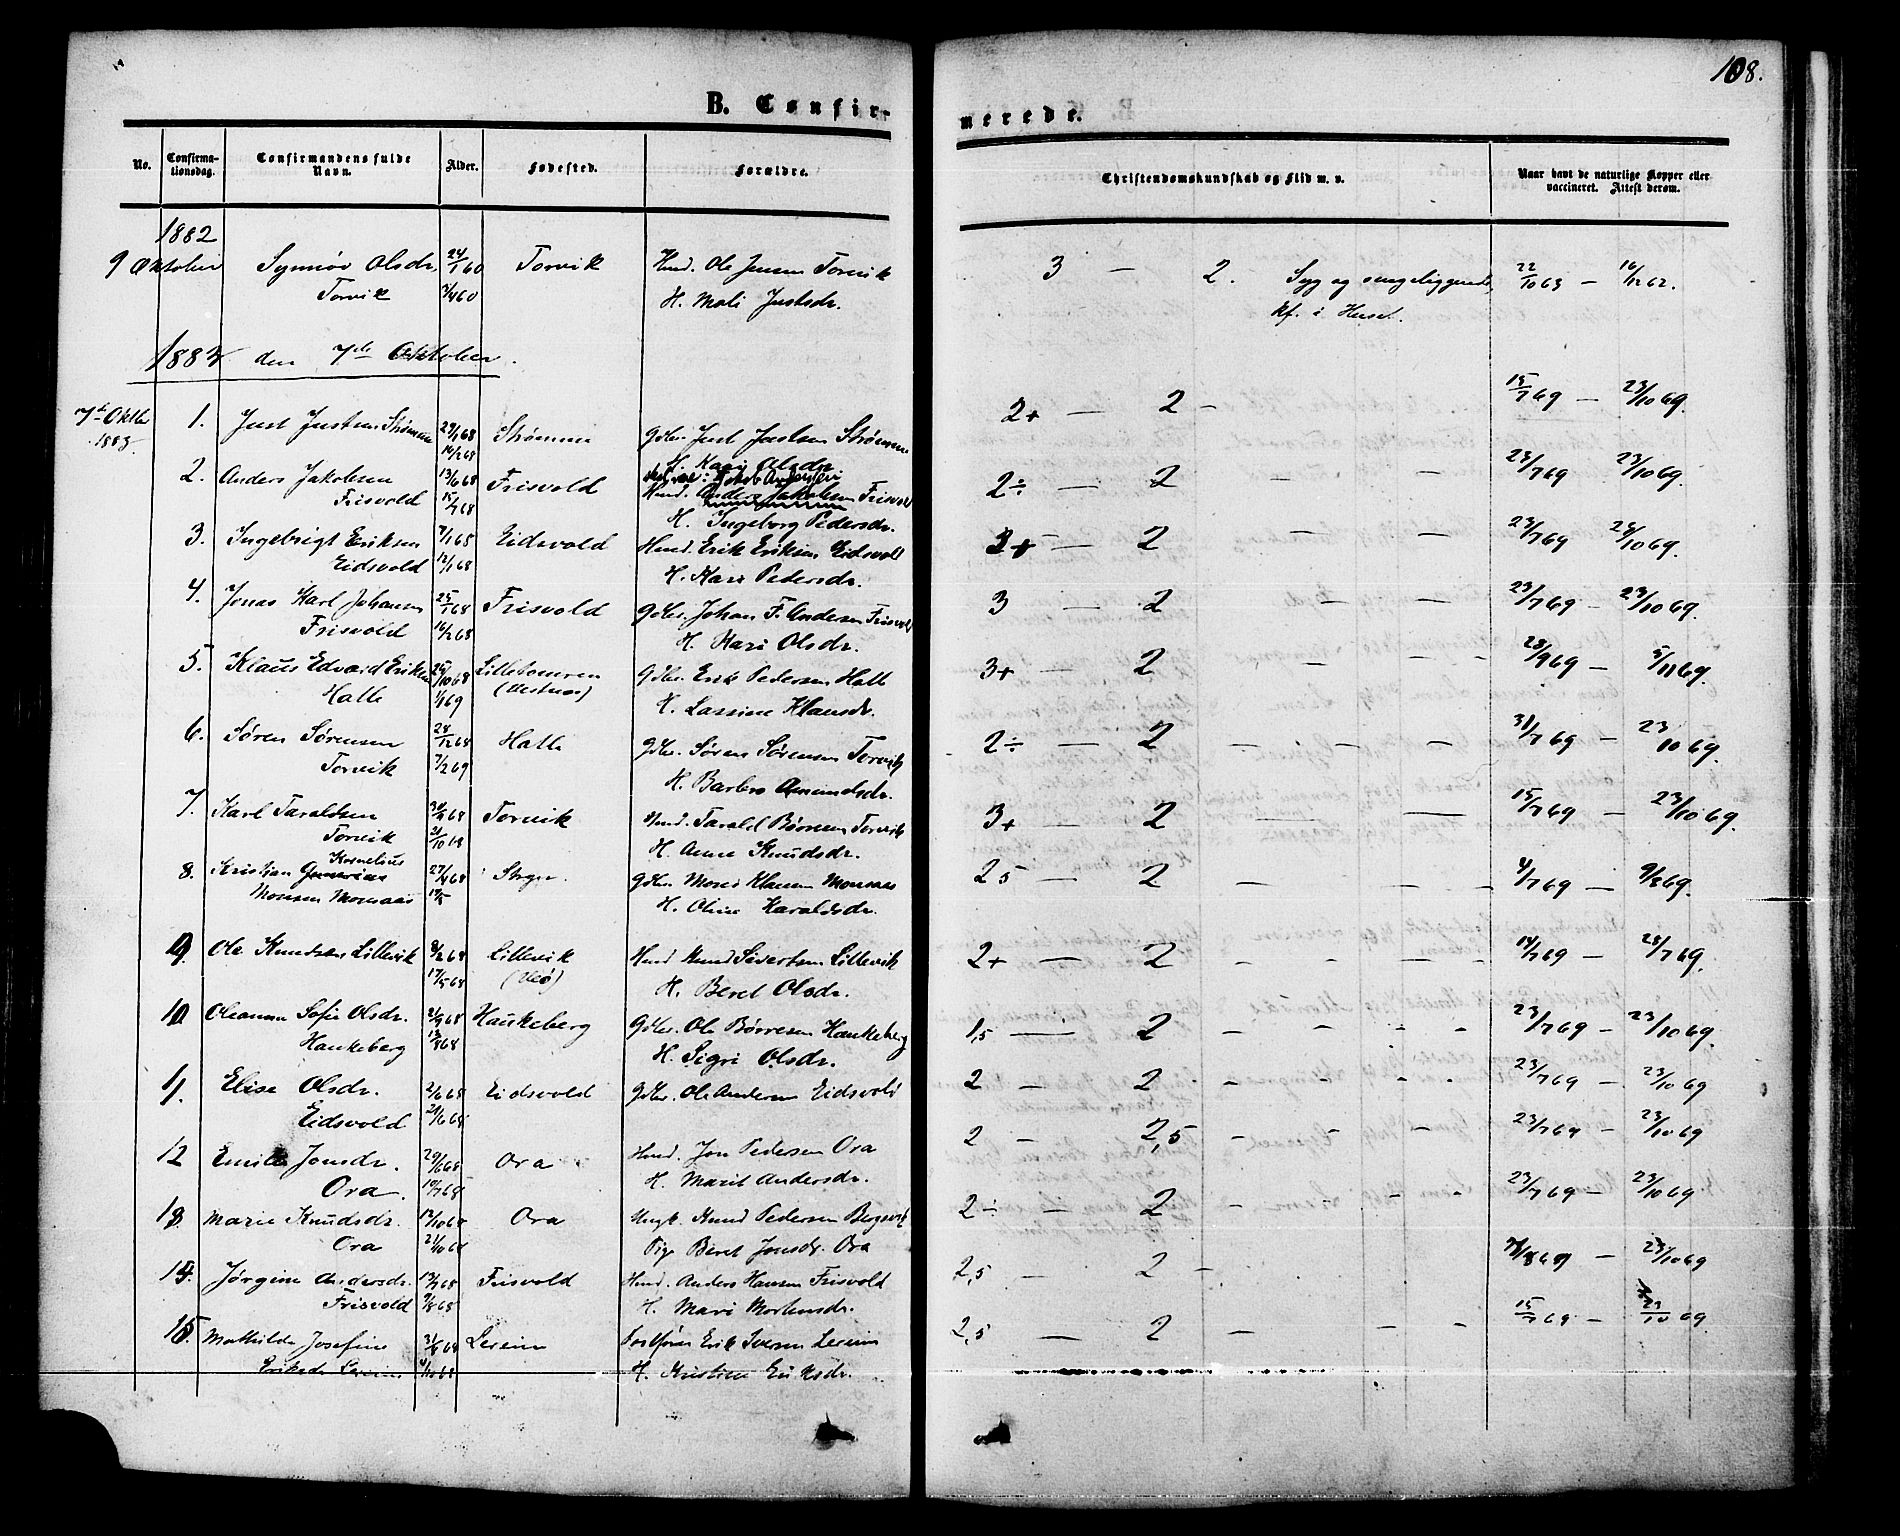 108.
B. Confir-
merede.
No.
Confirma-
tionsdag.
Confirmandens fulde
Navn.
Alder.
Fødested.
Forældre.
Christendomskundskab og Flid m. v.
Naar havt de naturlige Kopper eller
vaccineret. Attest derom.
1882
9 Oktober Synnøv Olsdr. 24/1 60 Torvik Hmd. Ole Jensen Torvik 3 — 2. Syg og sengeliggende, 22/10 63 — 16/12 62.
Torvik 9/4 60 H. Mali Justsdr. Kf. i Huset.
1883 den 7de Oktober.
7de Oktbr 1. Just Justsen Strømme 29/1 68 Strømme Gdbr. Just Justsen Strømme 2+ — 2 — 15/7 69 — 23/10 69.
1883. 16/2 68 H. Kari Olsdr.
2. Anders Jakobsen 13/6 68 Frisvold Jakob Andersen 2÷ — 2 — — 23/7 69 23/10 69.
Frisvold 15/7 68 Hmd. Anders Jakobsen Frisvold
H. Ingeborg Pedersdr.
3. Ingebrigt Eriksen 7/1 68 Eidsvold Hmd. Erik Eriksen Eidsvold 3+ — 2 — — 23/7 69 23/10 69.
Eidsvold 12/1 68 H. Kari Pedersdr.
4. Jonas Karl Johansen 25/1 68 Frisvold Gdbr. Johan F. Andersen Frisvold 3 — 2 — — 23/7 69 — 23/10 69.
Frisvold 16/2 68 H. Kari Olsdr.
5. Klaus Edvard Eriksen 25/10 68 Lilletomren Gdbr. Erik Pedersen Hatle 3+ — 2 — — 23/9 69 — 5/11 69.
Hatle 1/1 69 (Vestnæs) H. Lassine Klausdr.
6. Søren Sørensen 24/12 68 Hatle Gdbr. Søren Sørensen Torvik 2÷ — 2 — — — 31/7 69 — 23/10 69.
Torvik 7/2 69 H. Barbro Amundsdr.
7. Karl Taraldsen 68 Torvik Hmd. Tarald Børresen Torvik 3+ — 2 — — 15/7 69 — 23/10 69.
Torvik H. Anne Knudsdr.
Kornelius
8. Kristian 27/4 68 Gdbr. Mons Klausen Monsaas 2 5 — 2 — — — 4/7 69 — 9/8 69.
Monsen Monsaas H. Oline Haraldsdr.
9. Ole Knudsen Lillevik 8/2 68 Lillevik Hmd. Knud Sivertsen Lillevik 2+ — 2 — — — 14/7 69 — 28/7 69.
17/5 68 (Veø) H. Beret Olsdr.
10 Oleanna Sofie Olsdr. 68 Haukeberg Gdbr. Ole Børresen Haukeberg 1,5 — 2 — — — — 23/7 69 — 23/10 69.
Haukeberg 68 H. Sigri Olsdr.
11. Elise Olsdr. 2/6 68 Eidsvold Gdbr. Ole Andersen Eidsvold 2 — 2 - - - - 23/7 69 — 23/10 69
Eidsvold 29/6 68
12 Emilie Jonsdr. 29/6 68 Ora Hmd. Jon Pedersen Ora 2 — 2,5 - - - 23/7 69 — 23/10 69
Ora. 19/7 68 H. Marit Andersdr.
13 Marie Knudsdr. Ora Ungk. Knud Pedersen Bergsvik 2÷ — 2 - - - 23/7 69 — 23/10 69
Ora Pige Beret Jonsdr. Ora
14. Jørgine Andersdr. 13/7 68 Frisvold Hmd. Anders Hansen Frisvold 2,5 — 2 — 69 — 23/10 69
Frisvold 9/8 68 H. Mari Mortensdr.
15. Mathilde Josefine 68 Lereim Erik Iversen Lereim 2,5 — 2 — — - - 15/7 69 — 23/10 69
Eriksdr. Lereim 68 H. Kristine Eriksdr.